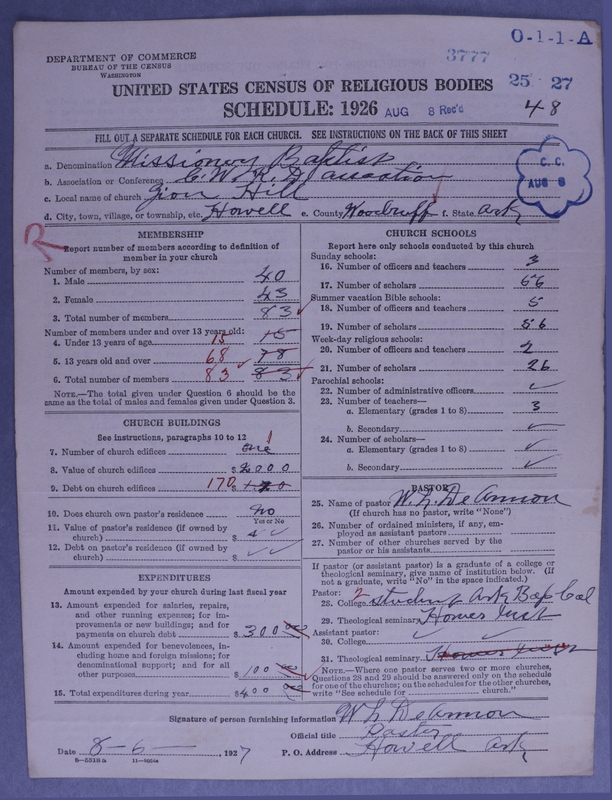 O-1-1-A
DEPARTMENT OF COMMERCE
BUREAU OF THE CENSUS
WASHINGTON
3777
25 27
UNITED STATES CENSUS OF RELIGIOUS BODIES
SCHEDULE: 1926 AUG 8 Rec'd 48
FILL OUT A SEPARATE SCHEDULE FOR EACH CHURCH. SEE INSTRUCTIONS ON THE BACK OF THIS SHEET
C. C.
AUG 8
a. Denomination Missionery Baptist
b. Association or Conference C. W. R. D. assoation
c. Local name of church Zion Hill
d. City, town, village, or township, etc. Howell e. County Woodruff f. State Ark
R
MEMBERSHIP
Report number of members according to definition of
member in your church
Number of members, by sex:
1. Male 40
2. Female 43
3. Total number of members 83
Number of members under and over 13 years old:
4. Under 13 years of age 15 15
5. 13 years old and over 68 78
6. Total number of members 83 83
NOTE.—The total given under Question 6 should be the
same as the total of males and females given under Question 3.
CHURCH BUILDINGS
See instructions, paragraphs 10 to 12
7. Number of church edifices one 1
8. Value of church edifices $2000
9. Debt on church edifices 170 $
10. Does church own pastor's residence No
Yes or No
11. Value of pastor's residence (if owned by
church) $
12. Debt on pastor's residence (if owned by
church) $
EXPENDITURES
Amount expended by your church during last fiscal year
13. Amount expended for salaries, repairs,
and other running expenses; for im-
provements or new buildings; and for
payments on church debt $300 00
14. Amount expended for benevolences, in-
cluding home and foreign missions; for
denominational support; and for all
other purposes 100 00
15. Total expenditures during year $400 00
CHURCH SCHOOLS
Report here only schools conducted by this church
Sunday schools:
16. Number of officers and teachers 3
17. Number of scholars 56
Summer vacation Bible schools:
18. Number of officers and teachers 5
19. Number of scholars 56
Week-day religious schools:
20. Number of officers and teachers 2
21. Number of scholars 26
Parochial schools:
22. Number of administrative officers
23. Number of teachers—
a. Elementary (grades 1 to 8) 3
b. Secondary
24. Number of scholars—
a. Elementary (grades 1 to 8)
b. Secondary
PASTOR
25. Name of pastor W. L. DeAmmon
(If church has no pastor, write "None")
26. Number of ordained ministers, if any, em-
ployed as assistant pastors
27. Number of other churches served by the
pastor or his assistants
If pastor (or assistant pastor) is a graduate of a college or
theological seminary, give name of institution below. (If
not a graduate, write "No" in the space indicated.)
Pastor: 2
28. College student Ark Bap Col
29. Theological seminary Homes Inst
Assistant pastor:
30. College
31. Theological seminary
NOTE.—Where one pastor serves two or more churches,
Questions 28 and 29 should be answered only on the schedule
for one of the churches; on the schedules for the other churches,
write "See schedule for church."
Signature of person furnishing information W L DeAmmon
Official title Paster
Date 8-6- 1927 P. O. Address Howell Ark
8-5518a